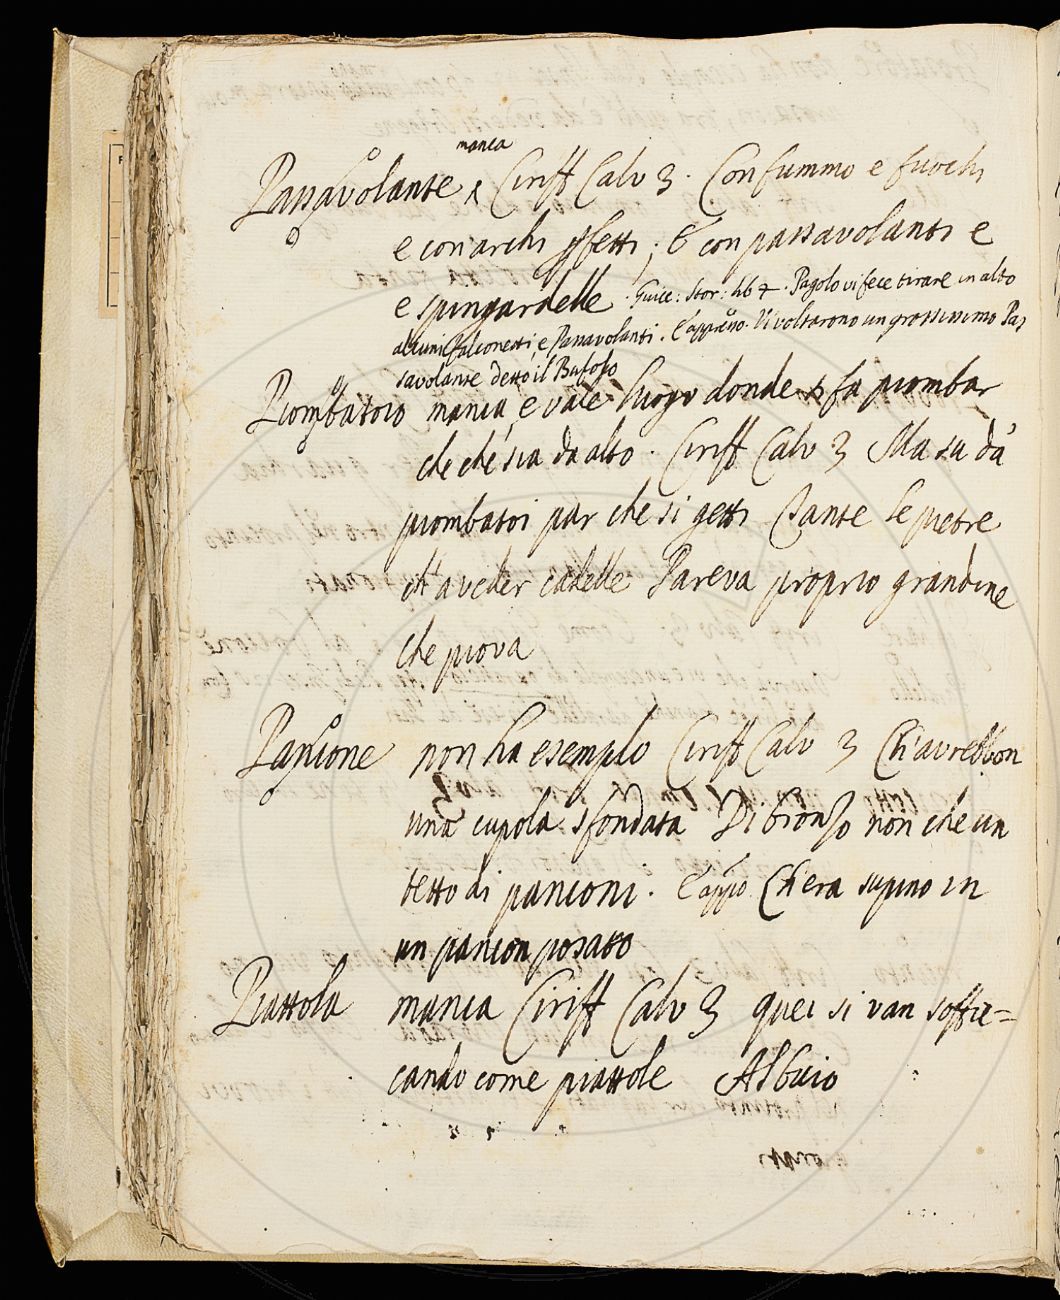 manca
Passavolante Ciriff Calv 3. Con fummo e fuochi
e con archi pfetti; E con passavolanti e
e spingardelle. Guicc: Stor: lib 4. Pagolo vi fece tirare in alto
alcuni Falconetti, e Passavolanti. E appresso. Vi voltarono un grossissimo Pas
savolante detto il Bufolo
Piombatoio manca, e vale luogo donde si fa piombar
che che sia da alto. Ciriff Calv 3 Ma su da
piombatoi par che si getti Tante le pietre
ch'a veder cadelle Pareva proprio grandine
che piova
Pancone non ha esemplo Ciriff Calv 3 Ch'avrebbon
una cupola sfondata Di bronzo non che un
tetto di panconi. E appo Ch'era supino in
un pancon posato
Piattola manca Ciriff Calv 3 quei si van soffic=
cando come piattole Al buio